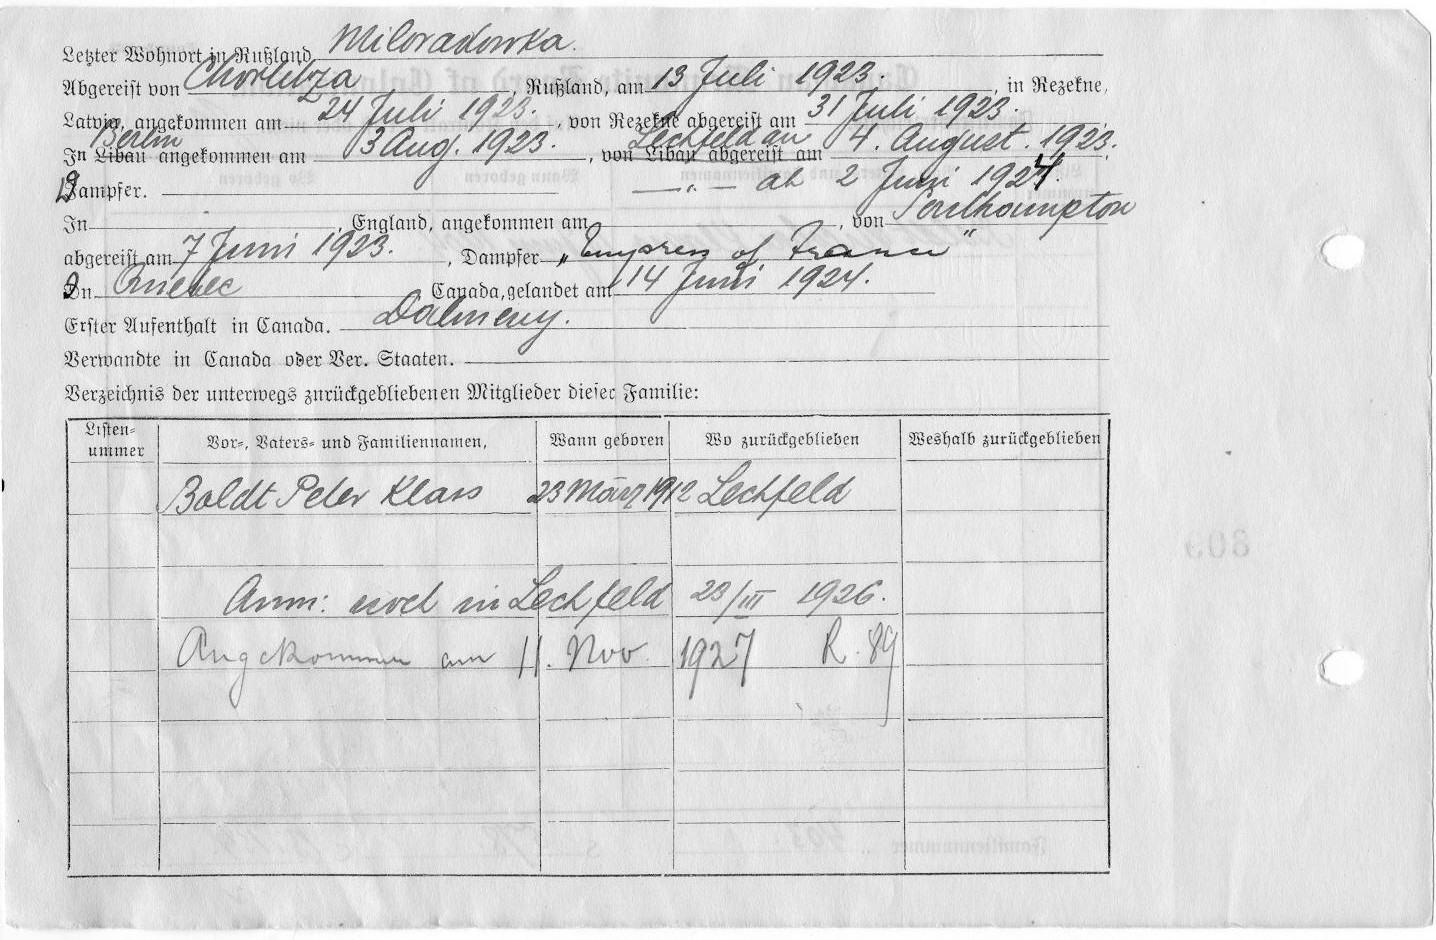 Letzter Wohnort in Rußland Miloradowka.
Abgereist von Chortitza, Rußland, am 13 Juli 1923., in Rezekne,
Latvia, angekommen am 24 Juli 1923., von Rezekne abgereist am 31 Juli 1923.
Berlin Lechfeld an
In Libau angekommen am 3 Aug. 1923., von Libau abgereist am 4. August. 1923.
Dampfer. — „ — ab 2 Juni 1924.
In , England, angekommen am , von Southampton
abgereist am 7 Juni 1923., Dampfer „Empress of France“
In Quebec Canada, gelandet am 14 Juni 1924.
Erster Aufenthalt in Canada. Dalmeny.
Verwandte in Canada oder Ver. Staaten.
Verzeichnis der unterwegs zurückgebliebenen Mitglieder dieser Familie:
Listen-
ummer Vor-, Vaters- und Familiennamen, Wann geboren Wo zurückgeblieben Weshalb zurückgeblieben
Boldt Peter Klaas 23 März 1912 Lechfeld
Anm: noch in Lechfeld 23/III 1926.
Angekommen am 11. Nov. 1927 R. 89